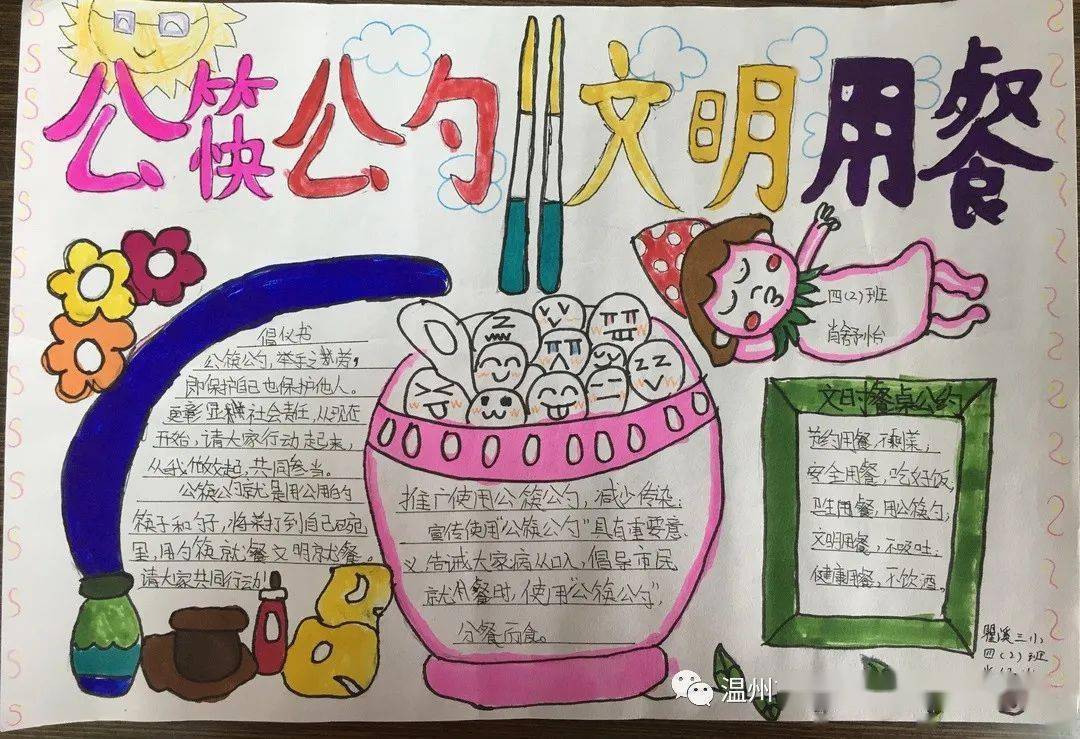 公筷公勺 文明用餐
倡仪书
公筷公勺,举手之劳,
即保护自己也保护他人。
更彰显社会责任,从现在
开始,请大家行动起来,
从我做起,共同参与。
公筷公勺就是用公用的
筷子和勺子,将菜打到自己碗
里,用勺筷就餐文明就餐。
请大家共同行动!
推广使用公筷公勺,减少传染;
宣传使用“公筷公勺”具有重要意
义告诫大家病从口入,倡导市民
就用餐时,使用“公筷公勺”,
分餐而食。
四(2)班
肖舒怡
文明餐桌公约
节约用餐,不剩菜;
安全用餐,吃好饭,
卫生用餐,用公筷勺,
文明用餐,不吸吐;
健康用餐,不饮酒。
瞿溪三小
四(2)班
温州